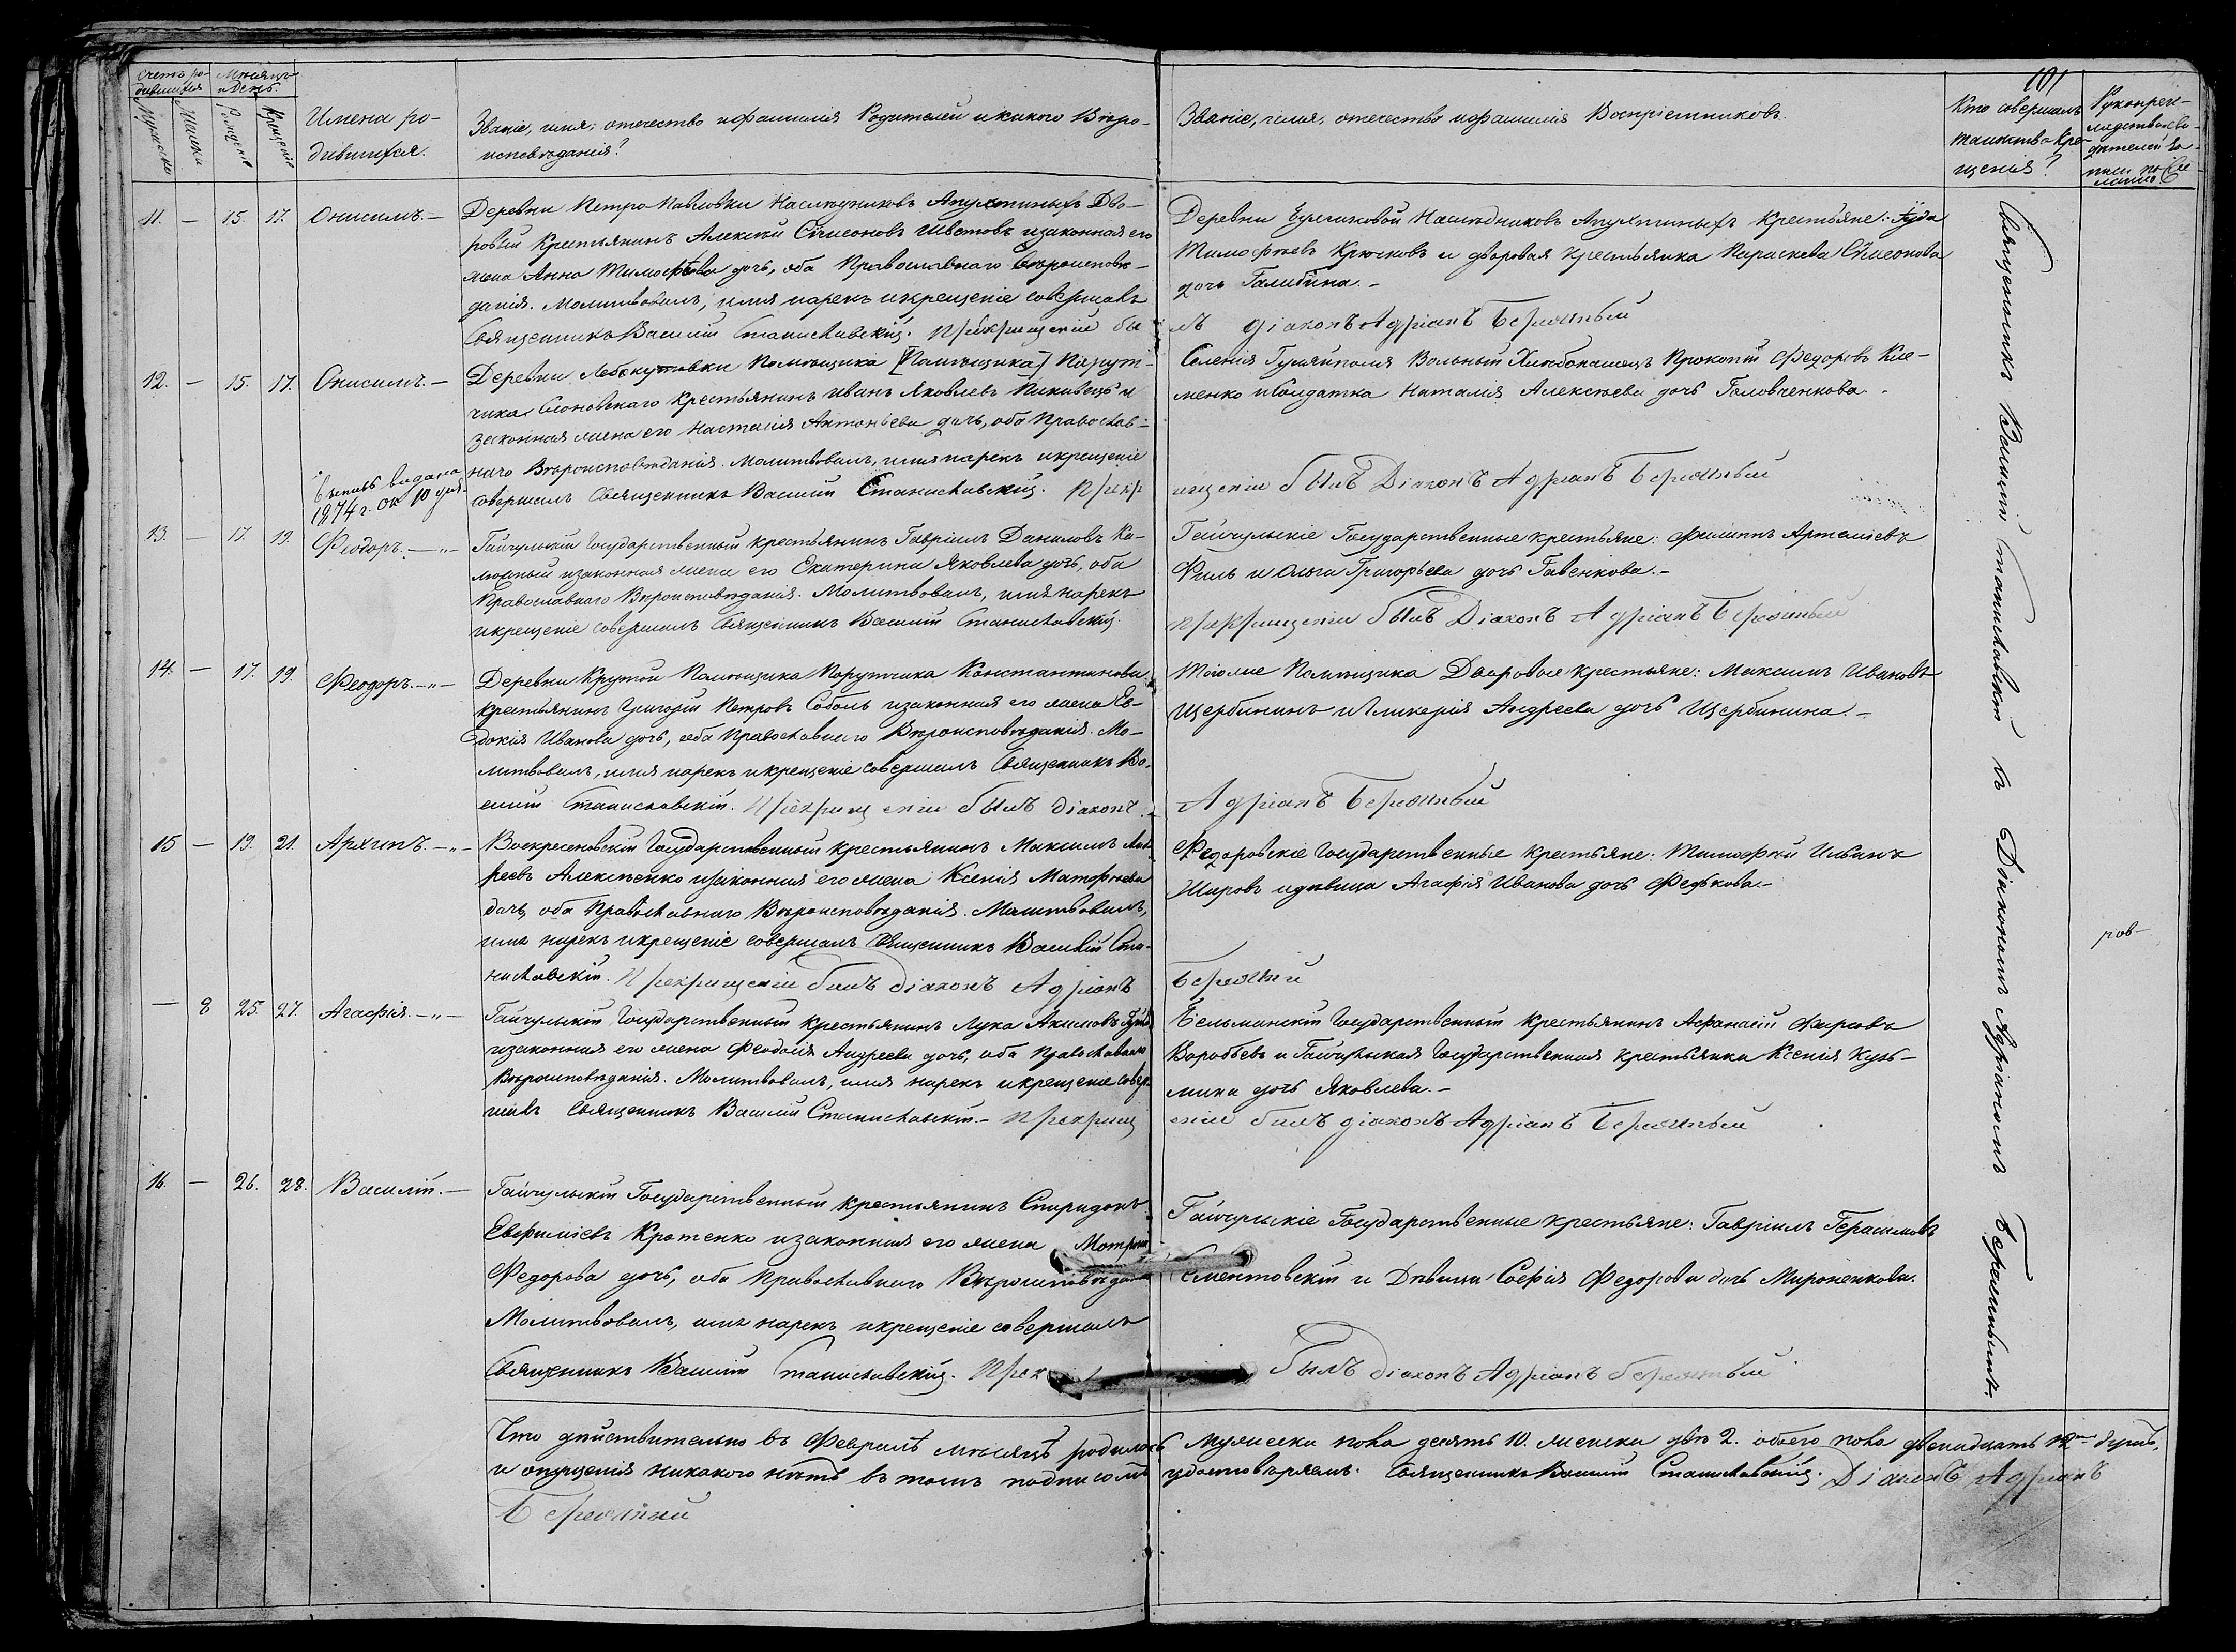 101
Счетъ ро-
дившихся
Мѣсяцъ
и День.
Мужеска
Женска
Рожденіе
Крещеніе
Имена ро-
дившихся.
Званіе, имя, отечество и фамилія Родителей и какого Вѣро-
исповѣданія?
Званіе, имя, отечество и фамилія Воспріемниковъ.
Кто совершалъ
таинство Кре-
щенія?
Рукопри-
кладство сви-
дѣтелей за-
писи по же-
ланію
11. — 15. 17. Онисимъ. —
Деревни Петро-Павловки Наслѣдниковъ Апухтиныхъ Дво-
ровый Крестьянинъ Алексѣй Сѵмеоновъ Шветовъ и законная его
жена Анна Тимофѣева дочь, оба Православнаго Вѣроисповѣ-
данія. Молитвовалъ, имя нарекъ и крещеніе совершалъ
Священникъ Василій Станиславскій. При крищеніи бы
Деревни Наслѣдниковъ Апухтиныхъ Крестьяне: Іуда
Тимофѣевъ Крюковъ и дворовая Крестьянка Параскева Сѵмеонова
дочь Галибина. —
лъ діаконъ Адріанъ Бережный
12. — 15. 17. Онисимъ. —
Деревни Помѣщика [Помѣщика] Порут-
чика Слоновскаго Крестьянинъ Иванъ Яковлевъ Пиковецъ и
законная жена его Настасія Антоньева дочь, оба Православ-
наго Вѣроисповѣданія. Молитвовалъ, имя нарекъ и крещеніе
совершалъ Священникъ Василій Станиславскій. При кр
Селенія Гуляйполя Вольный Хлѣбопашецъ Прокопій Федоровъ Кле-
менко и Солдатка Наталія Алексѣева дочь Головченкова.
ищеніи былъ Діаконъ Адріанъ Бережный
Выпись видана
1874 г. Ок 10 дня.
13. — 17. 19. Феодоръ. — „ —
Гайчульскій Государственный крестьянинъ Гавріилъ Даниловъ Ка-
люжный и законная жена его Екатерина Яковлева дочь, оба
Православнаго Вѣроисповѣданія. Молитвовалъ, имя нарекъ
и крещеніе совершалъ Священникъ Василій Станиславскій.
Гайчульскіе Государственные крестьяне: Филиппъ Артеміевъ
Филь и Ольга Григорьева дочь Гавенкова. —
при крищеніи былъ Діаконъ Адріанъ Бережный
14. — 17. 19. Феодоръ. — „ —
Деревни Крутой Помѣщика Порутчика Константинова
крестьянинъ Григорій Петровъ Соболь и законная его жена Ев-
докія Иванова дочь, оба Православнаго Вѣроисповѣданія. Мо-
литвовалъ, имя нарекъ и крещеніе совершалъ Священникъ Ва-
силій Станиславскій. При крищеніи былъ діаконъ
Тогоже Помѣщика Дворовые крестьяне: Максимъ Ивановъ
Щербининъ и Гликерія Андреева дочь Щербинина. —
Адріанъ Бережный
15 — 19. 21. Архипъ. — „ —
Воскресеновскій Государственный крестьянинъ Максимъ Анд-
реевъ Алексѣенко и законная его жена Ксенія Матфѣева
дочь, оба Православнаго Вѣроисповѣданія. Молитвовалъ,
имя нарекъ и крещеніе совершалъ Священникъ Василій Ста-
ниславскій. При крищеніи былъ діаконъ Адріанъ
Федоровскіе Государственные крестьяне: Тимофѣй Ильинъ
Шаровъ и дѣвица Агафія Иванова дочь Федькова. —
Бережный
— 8 25. 27. Агафія. — „ —
Гайчульскій Государственный крестьянинъ Лука Акимовъ
и законная его жена Феодосія Андреева дочь, оба Православнаго
Вѣроисповѣданія. Молитвовалъ, имя нарекъ и крещеніе совер-
шалъ Священникъ Василій Станиславскій. — При крищ
Бельманскій Государственный крестьянинъ Афанасій Фирсовъ
Воробьевъ и Гайчульская Государственная крестьянка Ксенія Кузь-
мина дочь Яковлева. —
еніи былъ діаконъ Адріанъ Бережный
16. — 26. 28. Василій. —
Гайчульскій Государственный крестьянинъ Спиридонъ
Евфиміевъ Кротенко и законная его жена Матрона
Федорова дочь, оба Православнаго Вѣроисповѣданія
Молитвовалъ, имя нарекъ и крещеніе совершалъ
Священникъ Василій Станиславскій. При к
Гайчульскіе Государственные крестьяне: Гавріилъ Герасимовъ
Сментовскій и Дѣвица Софія Федорова дочь Мироненкова.
былъ діаконъ Адріанъ Бережный
Священникъ Василій Станиславскій съ Діакономъ Адріаномъ Бережнымъ.
ров—
Что дѣйствительно въ Февралѣ мѣсяцѣ родилось мужеска пола десять 10. женска двѣ 2. обоего пола двѣнадцать 12ть душъ,
и опущенія никакого нѣтъ въ томъ подписомъ удостовѣряемъ: Священникъ Василій Станиславскій. Діаконъ Адріанъ
Бережный